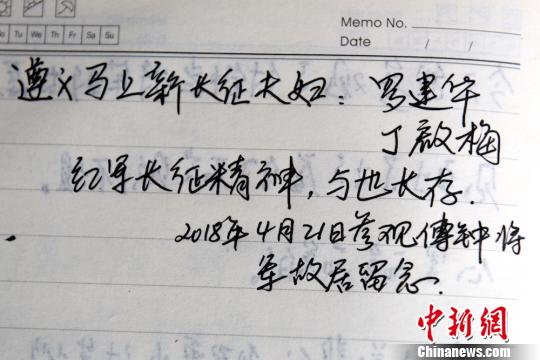 Memo No.
Tu We Th Fr Sa Su
Date / /
遵义马上新长征夫妇：罗建华
丁啟梅
红军长征精神，与世长存.
2018年4月21日参观傅钟将
军故居留念.
中新网
Chinanews.com